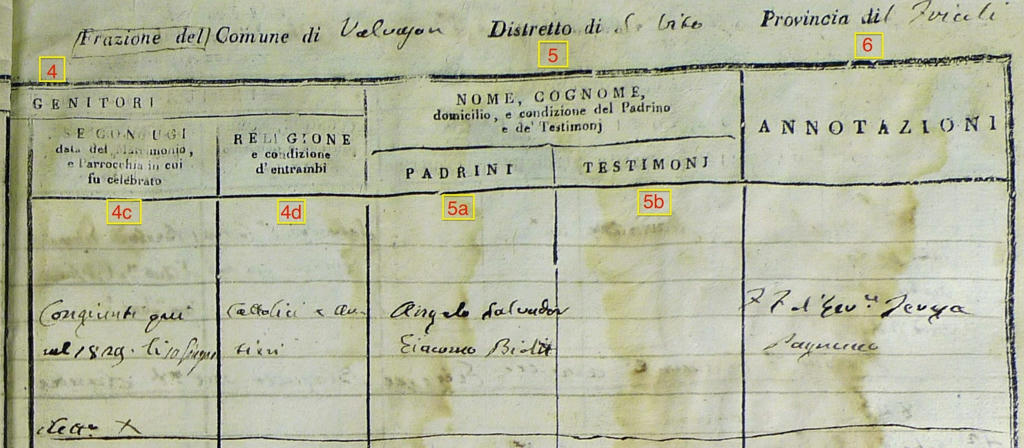 (Frazione del) Comune di Valvason Distretto di S. Vito Provincia di Friuli
4
5
6
GENITORI
SE CONIUGI
data del Matrimonio,
e Parrocchia in cui
fu celebrato
RELIGIONE
e condizione
d'entrambi
NOME, COGNOME,
domicilio, e condizione del Padrino
e de' Testimonj
PADRINI
TESTIMONJ
ANNOTAZIONI
4c
4d
5a
5b
Congiunti qui
nel 1829. li 10
Cattolici e
Angelo Salvador
Giacomo